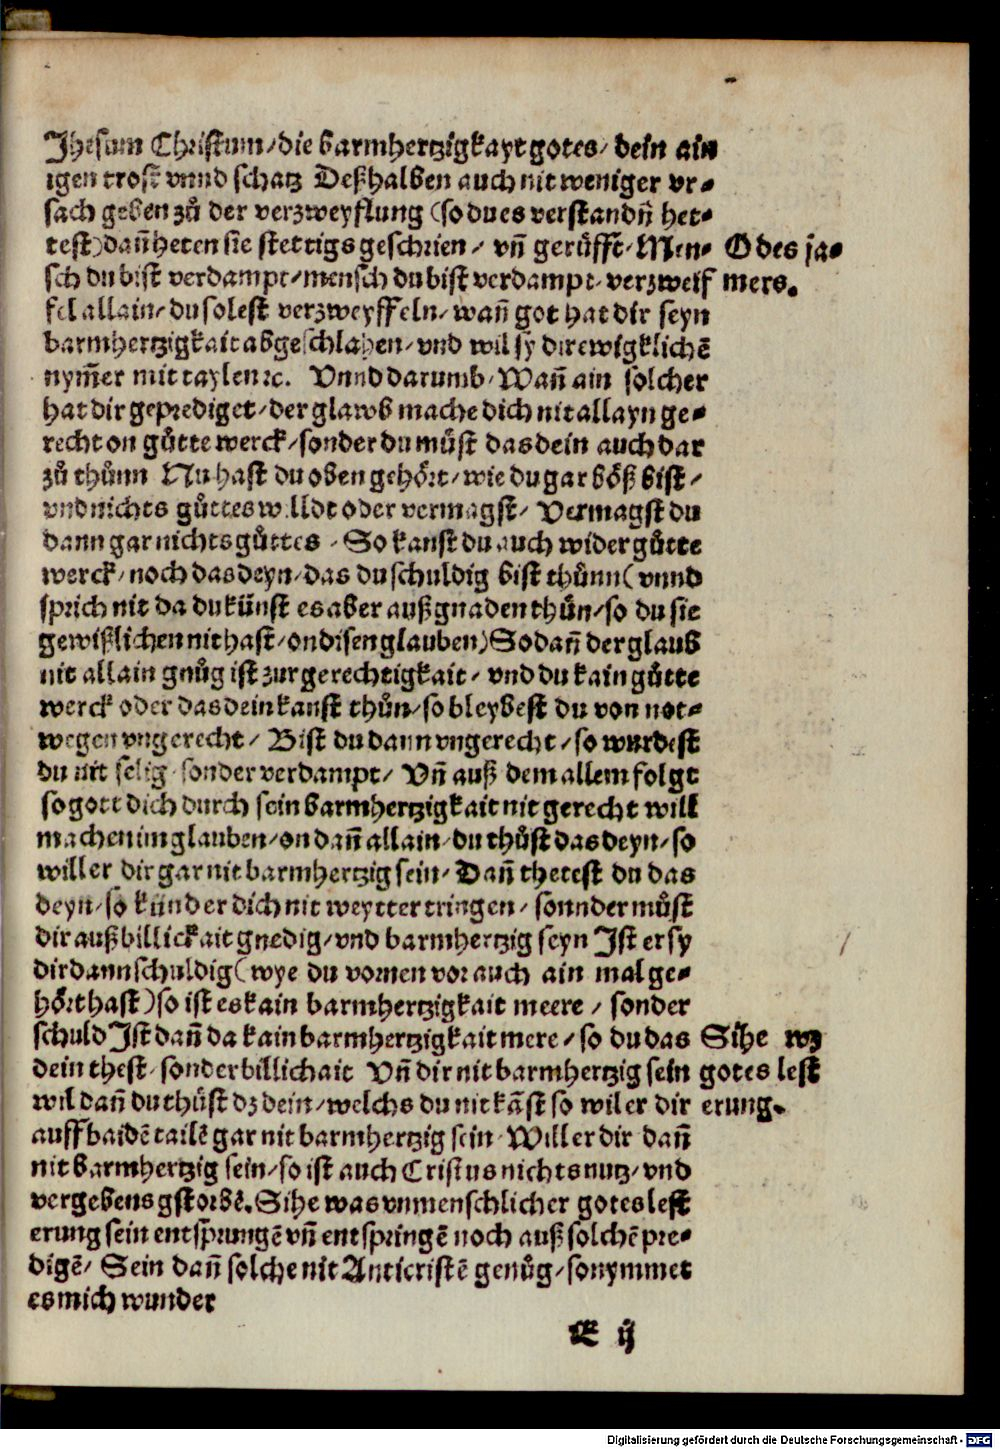 Jhesum Christum/die barmhertzigkayt gotes/ dein ain
igen trost vnnd schatz Deßhalben auch nit weniger vr⸗
sach geben zů der verzweyflung (so du es verstandñ het⸗
test) dañ heten sie stettigs geschrien/ vñ gerůfft/ Men⸗
sch du bist verdampt/mensch du bist verdampt/ verzweif
fel allain/ du solest verzweyffeln/ wañ got hat dir seyn
barmhertzigkait abgeschlahen/ vnd wil sy dir ewigklichē
nym̃er mit taylen ꝛc. Vnnd darumb/ Wañ ain solcher
hat dir geprediget/ der glawb mache dich nit allayn ge⸗
recht on gůtte werck/sonder du můst das dein auch dar
zů thůnn Nu hast du oben gehört/ wie du gar böß bist/
vnd nichts gůttes willdt oder vermagst/ Vermagst du
dann gar nichts gůttes / So kanst du auch wider gůtte
werck/ noch das deyn/ das du schuldig bist thůnn( vnnd
sprich nit da du künst es aber auß gnaden thůn/so du sie
gewißlichen nit hast/ on disen glauben) So dañ der glaub
nit allain gnůg ist zur gerechtigkait/ vnd du kain gůtte
werck oder das dein kanst thůn/so bleybest du von not⸗
wegen vngerecht/ Bist du dann vngerecht/so wurdest
du nit selig/ sonder verdampt/ Vñ auß dem allem folgt
so gott dich durch sein barmhertzigkait nit gerecht will
machen im glauben/on dañ allain/ du thůst das deyn/so
will er dir gar nit barmhertzig sein/ Dañ thetest du das
deyn/so künd er dich nit weytter tringen/ sonnder můst
dir auß billickait gnedig/vnd barmhertzig seyn Ist er sy
dir dann schuldig( wye du vornen vor auch ain mal ge⸗
hört hast) so ist es kain barmhertzigkait meere / sonder
schuld Ist dañ da kain barmhertzigkait mere/ so du das
dein thest/ sonder billichait Vñ dir nit barmhertzig sein
wil dañ du thůst dz dein/welchs du nit kāst so wil er dir
auff baidē tailē gar nit barmhertzig sein/ Will er dir dañ
nit barmhertzig sein/so ist auch Cristus nichts nutz/vnd
vergebens gstorbē. Sihe was vnmenschlicher gotes lest
erung sein entsprungē vñ entspringē noch auß solchē pre⸗
digē/ Sein dañ solche nit Anticristē genůg/so nymmet
es mich wunder
O des ja⸗
mers.
Sihe wz
gotes lest
erung.
E ij
Digitalisierung gefördert durch die Deutsche Forschungsgemeinschaft - DFG